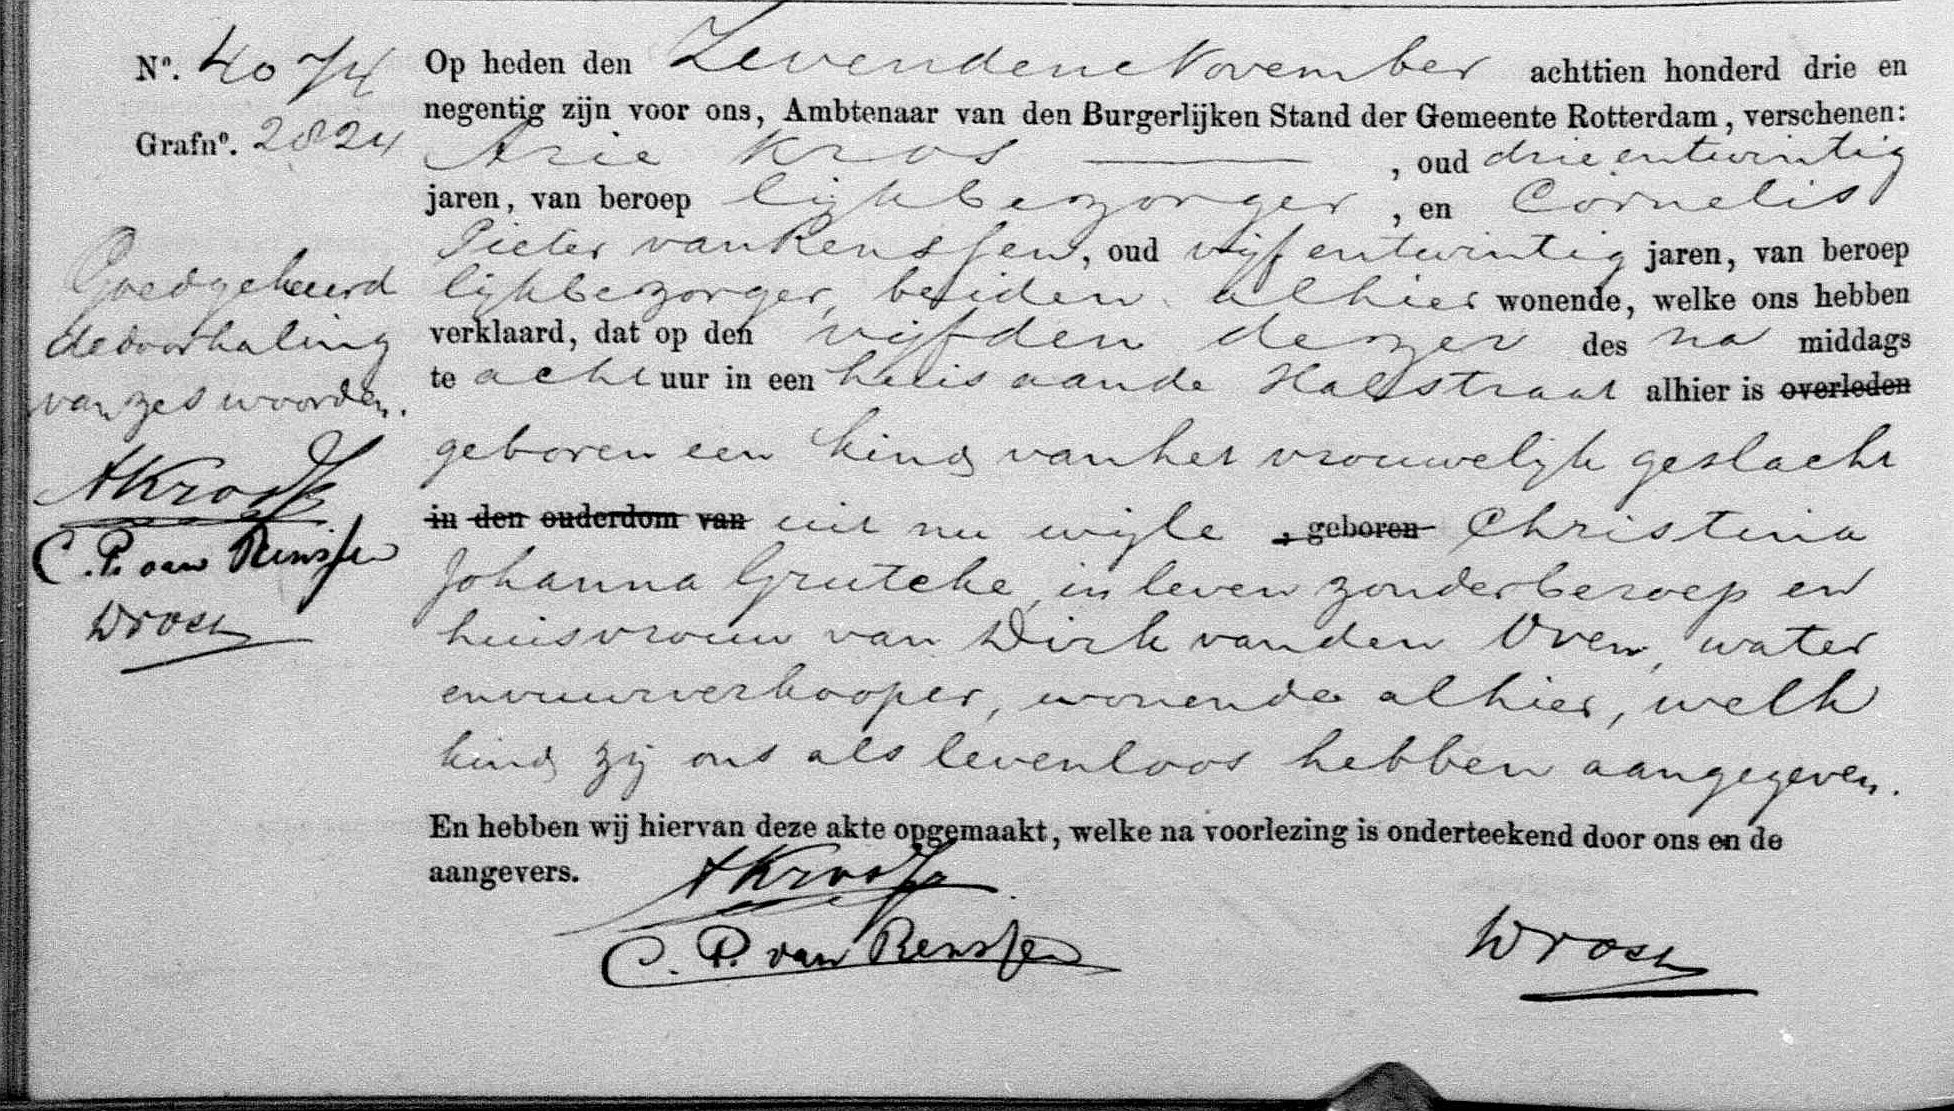 Nº. 4074
Grafnº. 2824
Op heden den Zevenden November achttien honderd drie en
negentig zijn voor ons, Ambtenaar van den Burgerlijken Stand der Gemeente Rotterdam, verschenen:
Arie Kros , oud drie en twintig
jaren, van beroep lijkbezorger , en Cornelis
Pieter van Renssen, oud vijf en twintig jaren, van beroep
lijkbezorger, beiden alhier wonende, welke ons hebben
verklaard, dat op den vijfden dezer des na middags
te acht uur in een huis aan de straat alhier is overleden
geboren een kind van het vrouwelijk geslacht
in den ouderdom van uit nu wijle , geboren Christina
Johanna Grutcke, in leven zonder beroep en
huisvrouw van Dirk van den Oven, water
en vuurverkooper, wonende alhier, welk
kind zij ons als levenloos hebben aangegeven.
En hebben wij hiervan deze akte opgemaakt, welke na voorlezing is onderteekend door ons en de
aangevers.
A Kros
C. P. van Renssen
Drost
Goedgekeurd
de doorhaling
van zes woorden.
A Kros
C. P. van Renssen
Drost